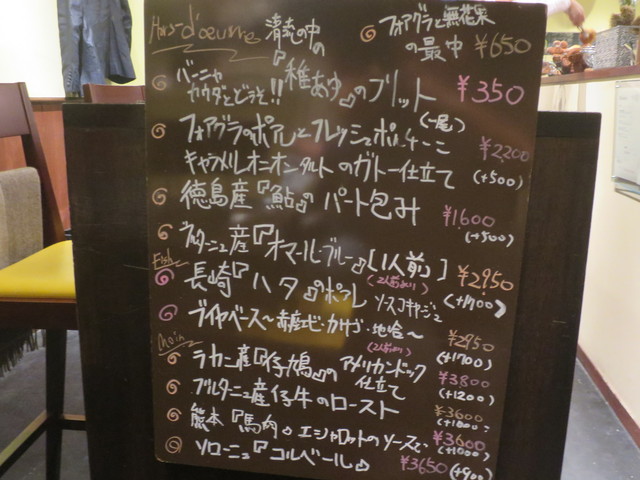 Hors-d'œuvre
フォアグラと無花果
の最中 ¥650
清流の中の
『稚あゆ』のフリット ¥350
バーニャ
カウダとどうぞ!!
(一尾)
フォアグラのポアレとフレッシュポルチーニ ¥2200
キャラメルオニオンタルトのガトー仕立て (+500)
徳島産『鮎』のパート包み ¥1600
(+500)
ブルターニュ産『オマールブルー』[1人前] ¥2950
Fish
(2人前より)
(+1400)
長崎『ハタ』のポアレ ソースコキヤージュ
ブイヤベース〜赤座エビ・カサゴ・地蛤〜 ¥2950
(2人前より) (+1700)
ラカン産『仔鳩』のアメリカンドック
仕立て ¥3800
(+1200)
ブルターニュ産仔牛のロースト ¥3600
(+1000)
熊本『馬肉』エシャロットのソースで ¥3600
(+1000)
ソローニュ『コルベール』 ¥3650 (+900)